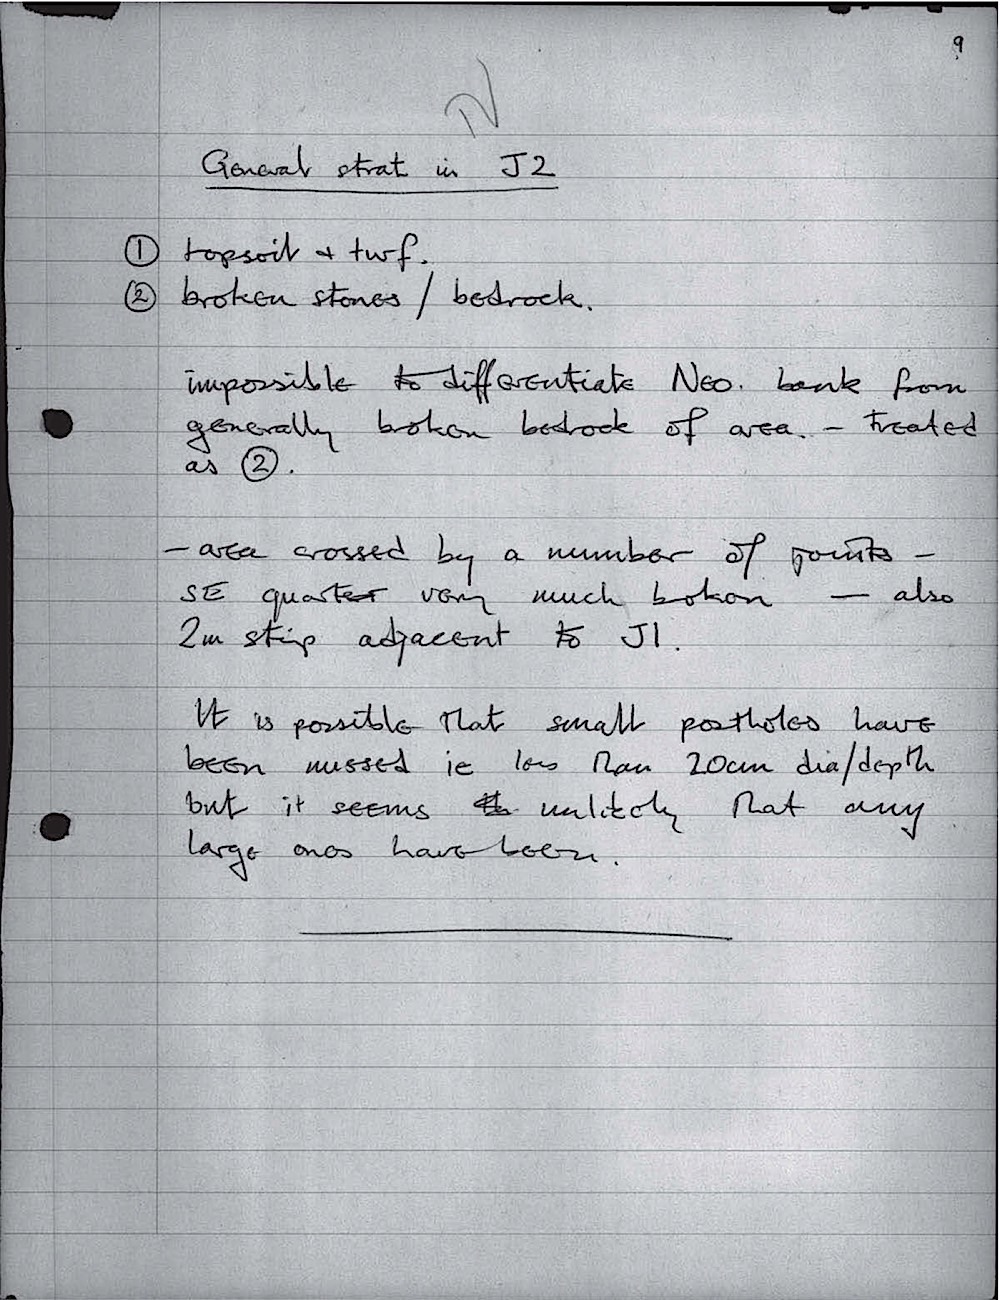 9
General strat in J2
① topsoil + turf.
② broken stones / bedrock.
impossible to differentiate Neo. bank from
generally broken bedrock of area. - treated
as ②.
- area crossed by a number of joints -
SE quarter very much broken - also
2m strip adjacent to J1.
It is possible that small postholes have
been missed ie less than 20cm dia/depth
but it seems unlikely that any
large ones have been.